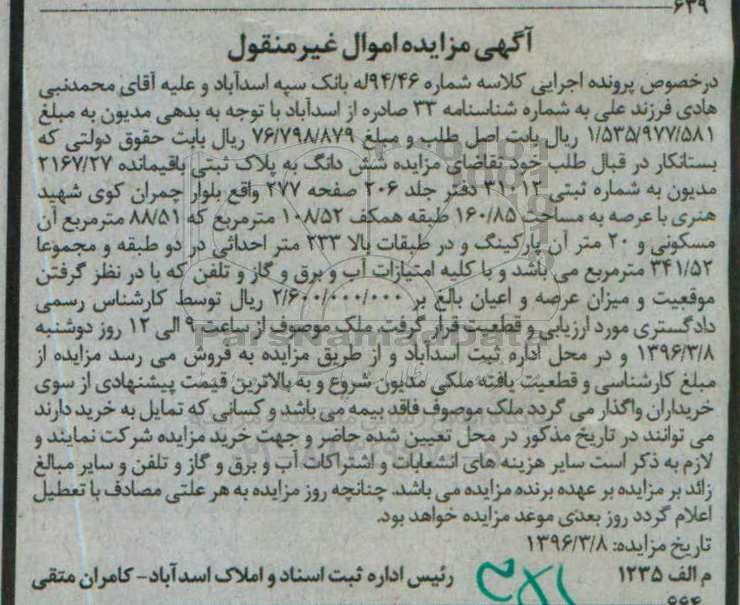 ۶۳۹
آگهی مزایده اموال غیرمنقول
درخصوص پرونده اجرایی کلاسه شماره ۹۴/۴۶له بانک سپه اسدآباد و علیه آقای محمدنبی
هادی فرزند علی به شماره شناسنامه ۳۳ صادره از اسدآباد با توجه به بدهی مدیون به مبلغ
۱/۵۳۵/۹۷۷/۵۸۱ ریال بابت اصل طلب و مبلغ ۷۶/۷۹۸/۸۷۹ ریال بابت حقوق دولتی که
بستانکار در قبال طلب خود تقاضای مزایده شش دانگ به پلاک ثبتی باقیمانده ۲۱۶۷/۲۷
مدیون به شماره ثبتی ۳۱۰۱۲ دفتر جلد ۲۰۶ صفحه ۲۷۷ واقع بلوار چمران کوی شهید
هنری با عرصه به مساحت ۱۶۰/۸۵ طبقه همکف ۱۰۸/۵۲ مترمربع که ۸۸/۵۱ مترمربع آن
مسکونی و ۲۰ متر آن پارکینگ و در طبقات بالا ۲۳۳ متر احداثی در دو طبقه و مجموعا
۳۴۱/۵۲ مترمربع می باشد و با کلیه امتیازات آب و برق و گاز و تلفن که با در نظر گرفتن
موقعیت و میزان عرصه و اعیان بالغ بر ۲/۶۰۰/۰۰۰/۰۰۰ ریال توسط کارشناس رسمی
دادگستری مورد ارزیابی و قطعیت قرار گرفت. ملک موصوف از ساعت ۹ الی ۱۲ روز دوشنبه
۱۳۹۶/۳/۸ و در محل اداره ثبت اسدآباد و از طریق مزایده به فروش می رسد مزایده از
مبلغ کارشناسی و قطعیت یافته ملکی مدیون شروع و به بالاترین قیمت پیشنهادی از سوی
خریداران واگذار می گردد ملک موصوف فاقد بیمه می باشد و کسانی که تمایل به خرید دارند
می توانند در تاریخ مذکور در محل تعیین شده حاضر و جهت خرید مزایده شرکت نمایند و
لازم به ذکر است سایر هزینه های انشعابات و اشتراکات آب و برق و گاز و تلفن و سایر مبالغ
زائد بر مزایده بر عهده برنده مزایده می باشد. چنانچه روز مزایده به هر علتی مصادف با تعطیل
اعلام گردد روز بعدی موعد مزایده خواهد بود.
تاریخ مزایده: ۱۳۹۶/۳/۸
م الف ۱۲۳۵ رئیس اداره ثبت اسناد و املاک اسدآباد- کامران متقی
۶۶۴
ParsNamadData